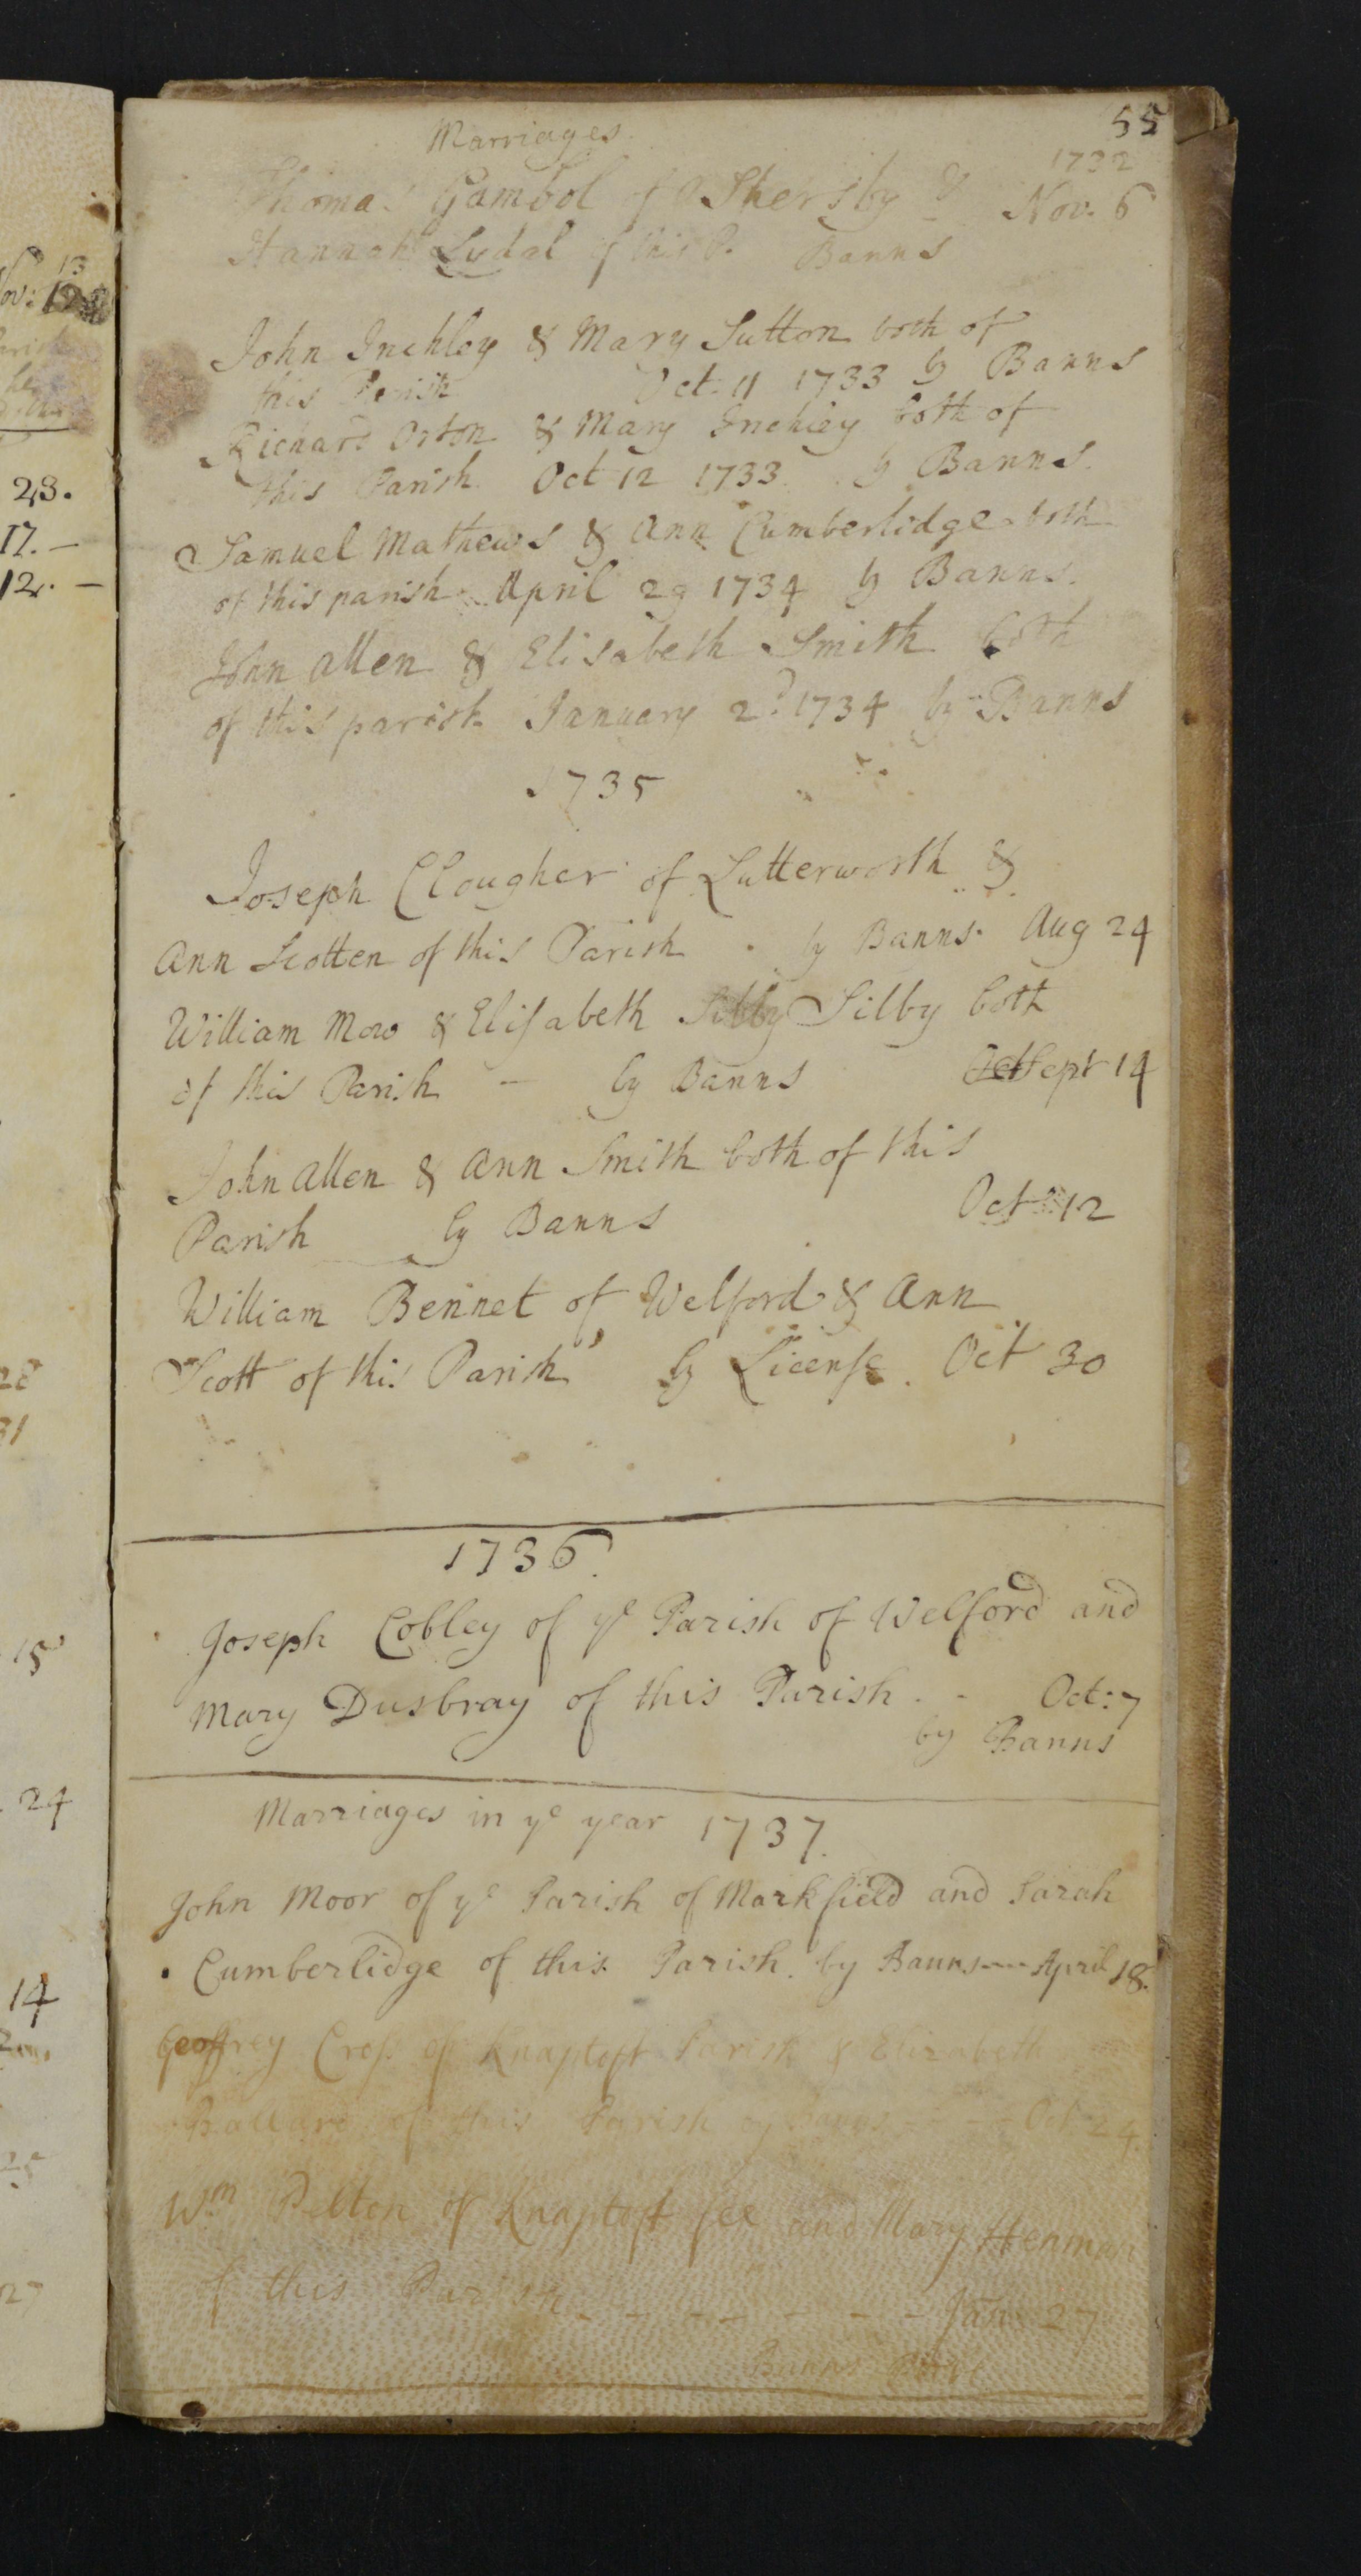 55
Marriages.
1732
Thomas Gambol of Shersby &
Nov. 6
Hannah Lydal of this P. Banns
John Inchley & Mary Sutton both of
this Parish Oct. 11 1733 by Banns
Richard Orton & Mary Inchley both of
this Parish Oct 12 1733 by Banns.
Samuel Mathews & Ann Cumberlidge both
of this parish April 29 1734 by Banns.
John Allen & Elisabeth Smith both
of this parish January 2d 1734 by Banns
1735
Joseph Clougher of Lutterworth &
Ann Scotten of this Parish by Banns. Aug 24
William Mow & Elisabeth Silby both
of this Parish - by Banns Sept 14
John Allen & Ann Smith both of this
Parish by Banns Oct 12
William Bennet of Welford & Ann
Scott of this Parish by License. Oct 30
1736.
Joseph Cobley of ye Parish of Welford and
Mary Dusbray of this Parish - - Oct: 7
by Banns
Marriages in ye year 1737.
John Moor of ye Parish of Markfield and Sarah
Cumberlidge of this Parish by Banns --- April 18.
Geoffrey Cross of Knaptoft Parish & Elizabeth
Ballard of this Parish by banns - - - Oct. 24.
Wm Pelton of Knaptoft and Mary Henman
of this Parish - - - - - - - Jan 27
Banns
13
12
28.
17. -
12. -
28
31
15
24
14
27